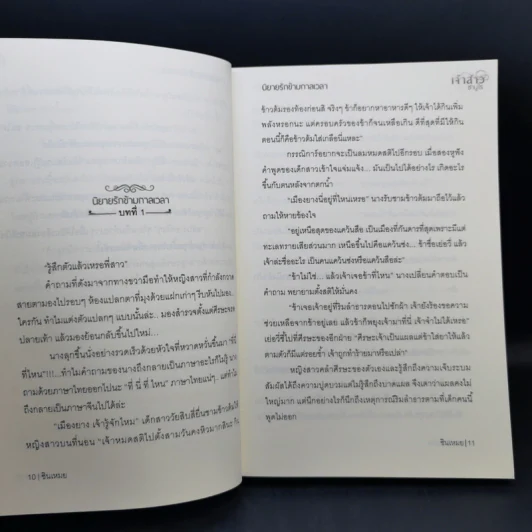 นิยายรักข้ามกาลเวลา
บทที่ 1
"รู้สึกตัวแล้วเหรอพี่สาว"
คำถามที่ดังมาจากทางขวามือทำให้หญิงสาวที่กำลังกวาด
สายตามองไปรอบๆ ห้องแปลกตาที่มุงด้วยแฝกเก่าๆ รีบหันไปมอง
ใครกัน ทำไมแต่งตัวแปลกๆ แบบนั้นล่ะ... มองสำรวจตั้งแต่ศีรษะจรด
ปลายเท้า แล้วมองย้อนกลับขึ้นไปใหม่...
นางลุกขึ้นนั่งอย่างรวดเร็วด้วยหัวใจที่หวาดหวั่นขึ้นมา "ที่
ที่ไหน"!!!...ทำไมคำถามของนางถึงกลายเป็นภาษาอะไรก็ไม่รู้
ถามด้วยภาษาไทยออกไปนะ "ที่ นี่ ที่ ไหน" ภาษาไทยแน่ๆ.. แต่ทำไม
ถึงกลายเป็นภาษาจีนไปได้ล่ะ
"เมืองยาง เจ้ารู้จักไหม" เด็กสาววัยสิบสี่ยื่นชามข้าวต้มให้
หญิงสาวบนที่นอน "เจ้าหมดสติไปตั้งสามวันคงหิวมากสินะ กิน
10 | ชินเหมย
นิยายรักข้ามกาลเวลา
เจ้าสาว
ข้าวต้มรองท้องก่อนสิ จริงๆ ข้าก็อยากหาอาหารดีๆ ให้เจ้าได้กินเพิ่ม
พลังหรอกนะ แต่ครอบครัวของข้าก็จนเหลือเกิน ดีที่สุดที่มีให้กิน
ตอนนี้ก็คือข้าวต้มใส่เกลือนี่แหละ"
กรรณิการ์อยากจะเป็นลมหมดสติไปอีกรอบ เมื่อสองหูฟัง
คำพูดของเด็กสาวเข้าใจแจ่มแจ้ง... มันเป็นไปได้อย่างไร เกิดอะไร
ขึ้นกับตนหลังจากตกน้ำ
"เมืองยางนี่อยู่ที่ไหนเหรอ" นางรับชามข้าวต้มมาถือไว้แล้ว
ถามให้หายข้องใจ
"อยู่เหนือสุดของแคว้นสือ เป็นเมืองที่กันดารที่สุดเพราะมีแต่
ทะเลทรายเสียส่วนมาก เหนือขึ้นไปคือแคว้นซ่ง... ข้าชื่อเย่อวี้ แล้ว
เจ้าล่ะชื่ออะไร เป็นคนแคว้นซ่งหรือแคว้นสือล่ะ"
"ข้าไม่ใช่... แล้วเจ้าเจอข้าที่ไหน" นางเปลี่ยนคำตอบเป็น
คำถาม พยายามตั้งสติให้มั่นคง
"ข้าเจอเจ้าอยู่ที่ริมลำธารตอนไปซักผ้า เจ้ายังร้องขอความ
ช่วยเหลือจากข้าอยู่เลย แล้วข้าก็พยุงเจ้ามาที่นี่ เจ้าจำไม่ได้เหรอ"
เย่อวี้ชี้ไปที่ศีรษะของอีกฝ่าย "ศีรษะเจ้าเป็นแผลแต่ข้าใส่ยาให้แล้ว
ตามตัวก็มีแต่รอยช้ำ เจ้าถูกทำร้ายมาหรือเปล่า"
หญิงสาวคลำศีรษะของตัวเองและรู้สึกถึงความเจ็บระบม
สัมผัสได้ถึงความปูดบวมแต่ไม่รู้สึกถึงบาดแผล จึงเดาว่าแผลคงไม่
ใหญ่มาก แต่นึกอย่างไรก็นึกถึงเหตุการณ์ริมลำธารตามที่เด็กคนนี้
พูดไม่ออก
ชินเหมย | 11